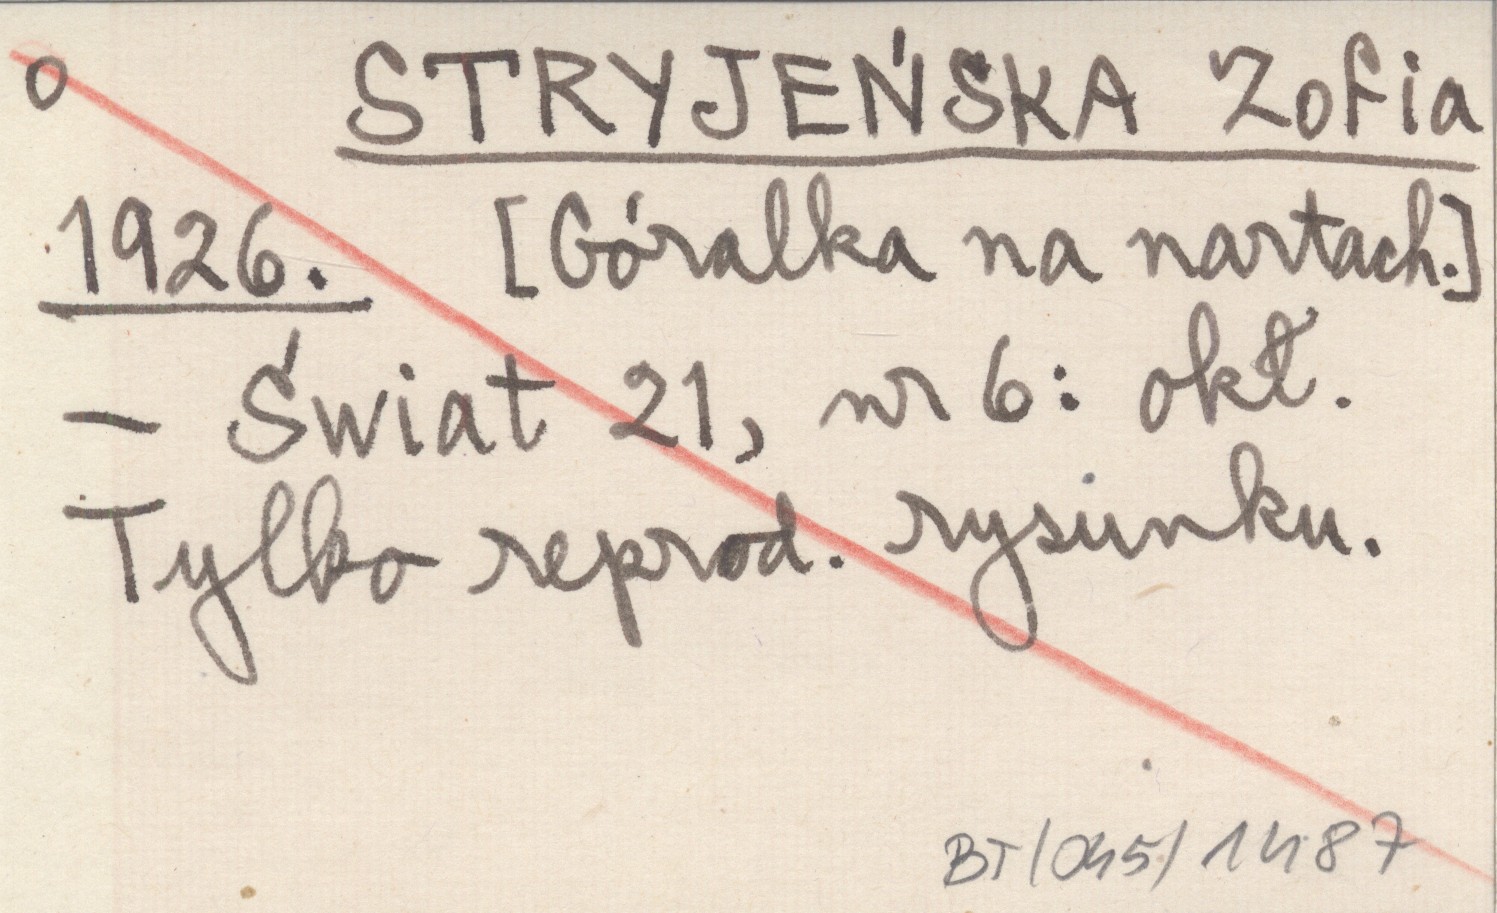 o STRYJEŃSKA Zofia
1926. [Góralka na nartach.]
– Świat 21, nr 6: okł.
Tylko reprod. rysunku.
BT/045/1487